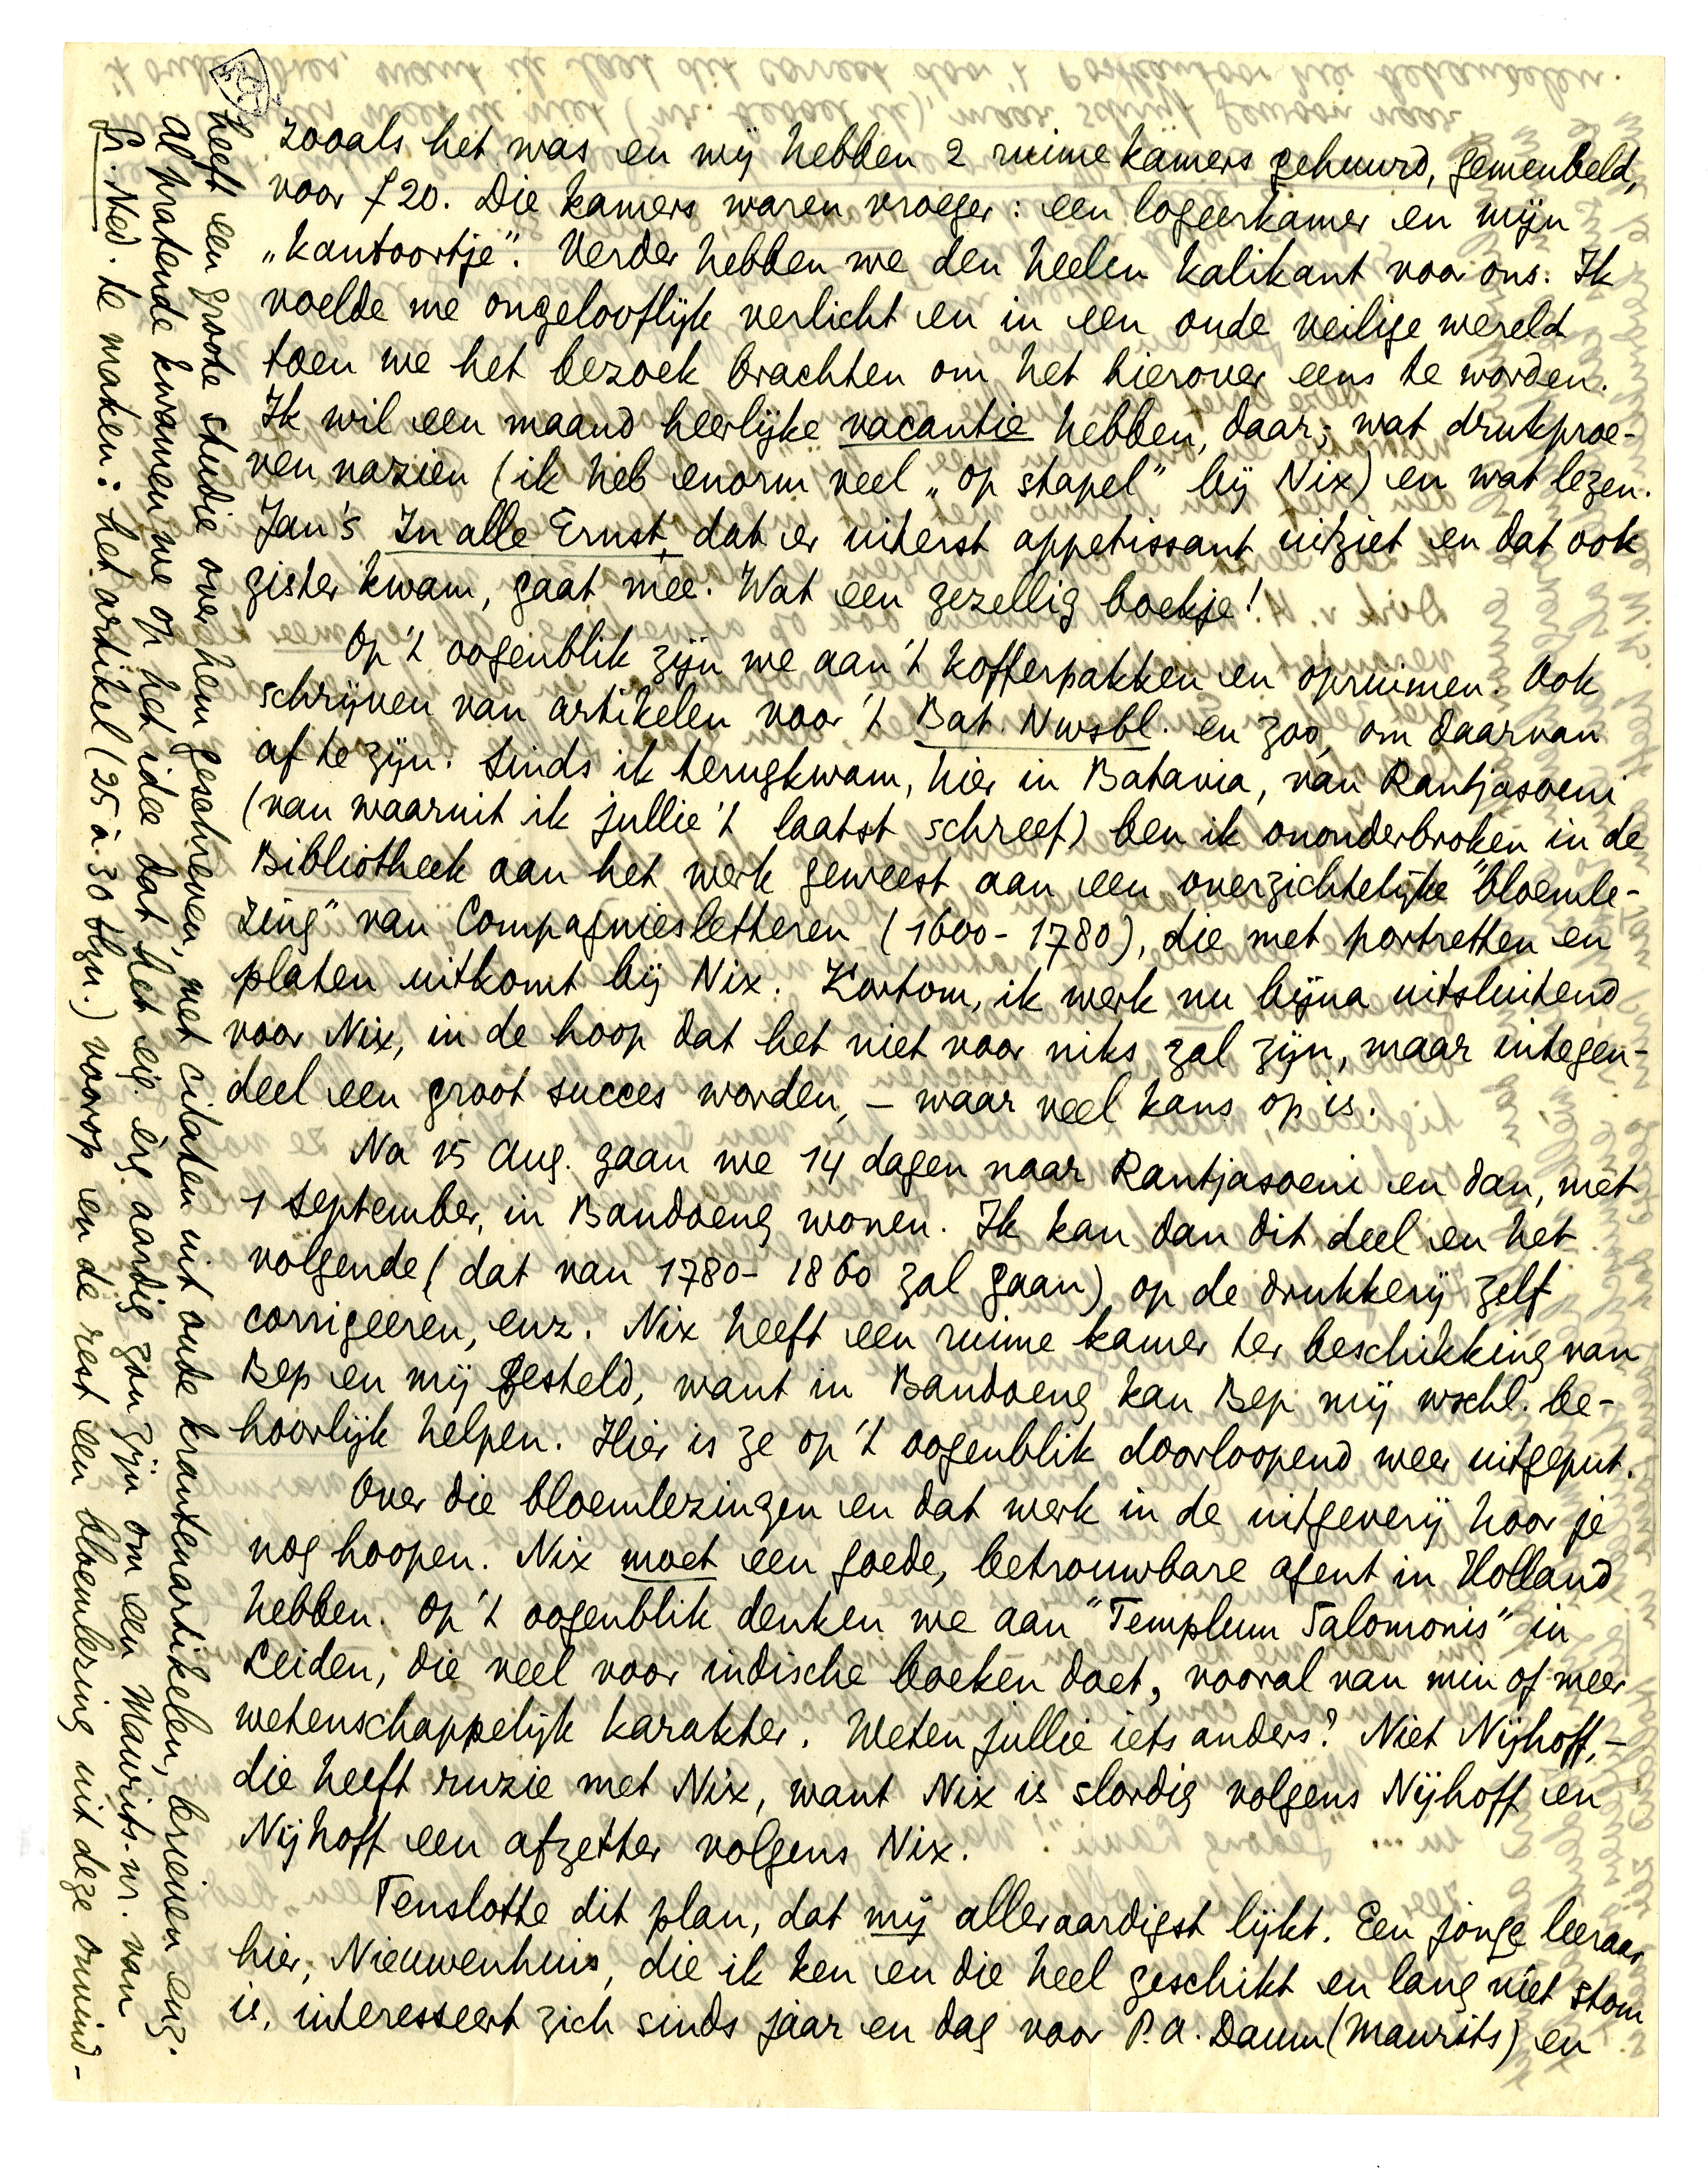 zooals het was en wij hebben 2 ruime kamers gehuurd, gemeubeld,
voor f 20. Die kamers waren vroeger: een logeerkamer en mijn
„kantoortje”. Verder hebben we den heelen kalikant voor ons. Ik
voelde me ongelooflijk verlicht en in een oude veilige wereld
toen we het bezoek brachten om het hierover eens te worden.
Ik wil een maand heerlijke vacantie hebben, daar; wat drukproe-
ven nazien (ik heb enorm veel „op stapel” bij Nix) en wat lezen.
Jan's In alle Ernst, dat er uiterst appetissant uitziet en dat ook
gister kwam, gaat mee. Wat een gezellig boekje!
Op 't oogenblik zijn we aan 't kofferpakken en opruimen. Ook
schrijven van artikelen voor 't Bat. Nwsbl. en zoo, om daarvan
af te zijn. Sinds ik terugkwam, hier in Batavia, van Rantjasoeni
(van waaruit ik jullie 't laatst schreef) ben ik ononderbroken in de
Bibliotheek aan het werk geweest aan een overzichtelijke "bloemle-
zing" van Compagniesletteren (1600-1780), die met portretten en
platen uitkomt bij Nix. Kortom, ik werk nu bijna uitsluitend
voor Nix, in de hoop dat het niet voor niks zal zijn, maar integen-
deel een groot succes worden, – waar veel kans op is.
Na 15 Aug. gaan we 14 dagen naar Rantjasoeni en dan, met
1 September, in Bandoeng wonen. Ik kan dan dit deel en het
volgende (dat van 1780-1860 zal gaan) op de drukkerij zelf
corrigeeren, enz. Nix heeft een ruime kamer ter beschikking van
Bep en mij gesteld, want in Bandoeng kan Bep mij wschl. be-
hoorlijk helpen. Hier is ze op 't oogenblik doorloopend weer uitgeput.
Over die bloemlezingen en dat werk in de uitgeverij hoor je
nog hoopen. Nix moet een goede, betrouwbare agent in Holland
hebben. Op 't oogenblik denken we aan "Templum Salomonis" in
Leiden, die veel voor indische boeken doet, vooral van min of meer
wetenschappelijk karakter. Weten jullie iets anders? Niet Nijhoff, –
die heeft ruzie met Nix, want Nix is slordig volgens Nijhoff en
Nijhoff een afzetter volgens Nix.
Tenslotte dit plan, dat mij alleraardigst lijkt. Een jonge leeraar
hier, Nieuwenhuis, die ik ken en die heel geschikt en lang niet stom
is, interesseert zich sinds jaar en dag voor P.A. Daum (Maurits) en
heeft een groote studie over hem geschreven, met citaten uit oude krantenartikelen, brieven enz.
Al pratende kwamen we op het idee dat het eig. erg aardig zou zijn om een Maurits-nr. van
Gr. Ned. te maken: het artikel (25 à 30 blzn.) voorop en de rest een bloemlezing uit deze onvind-